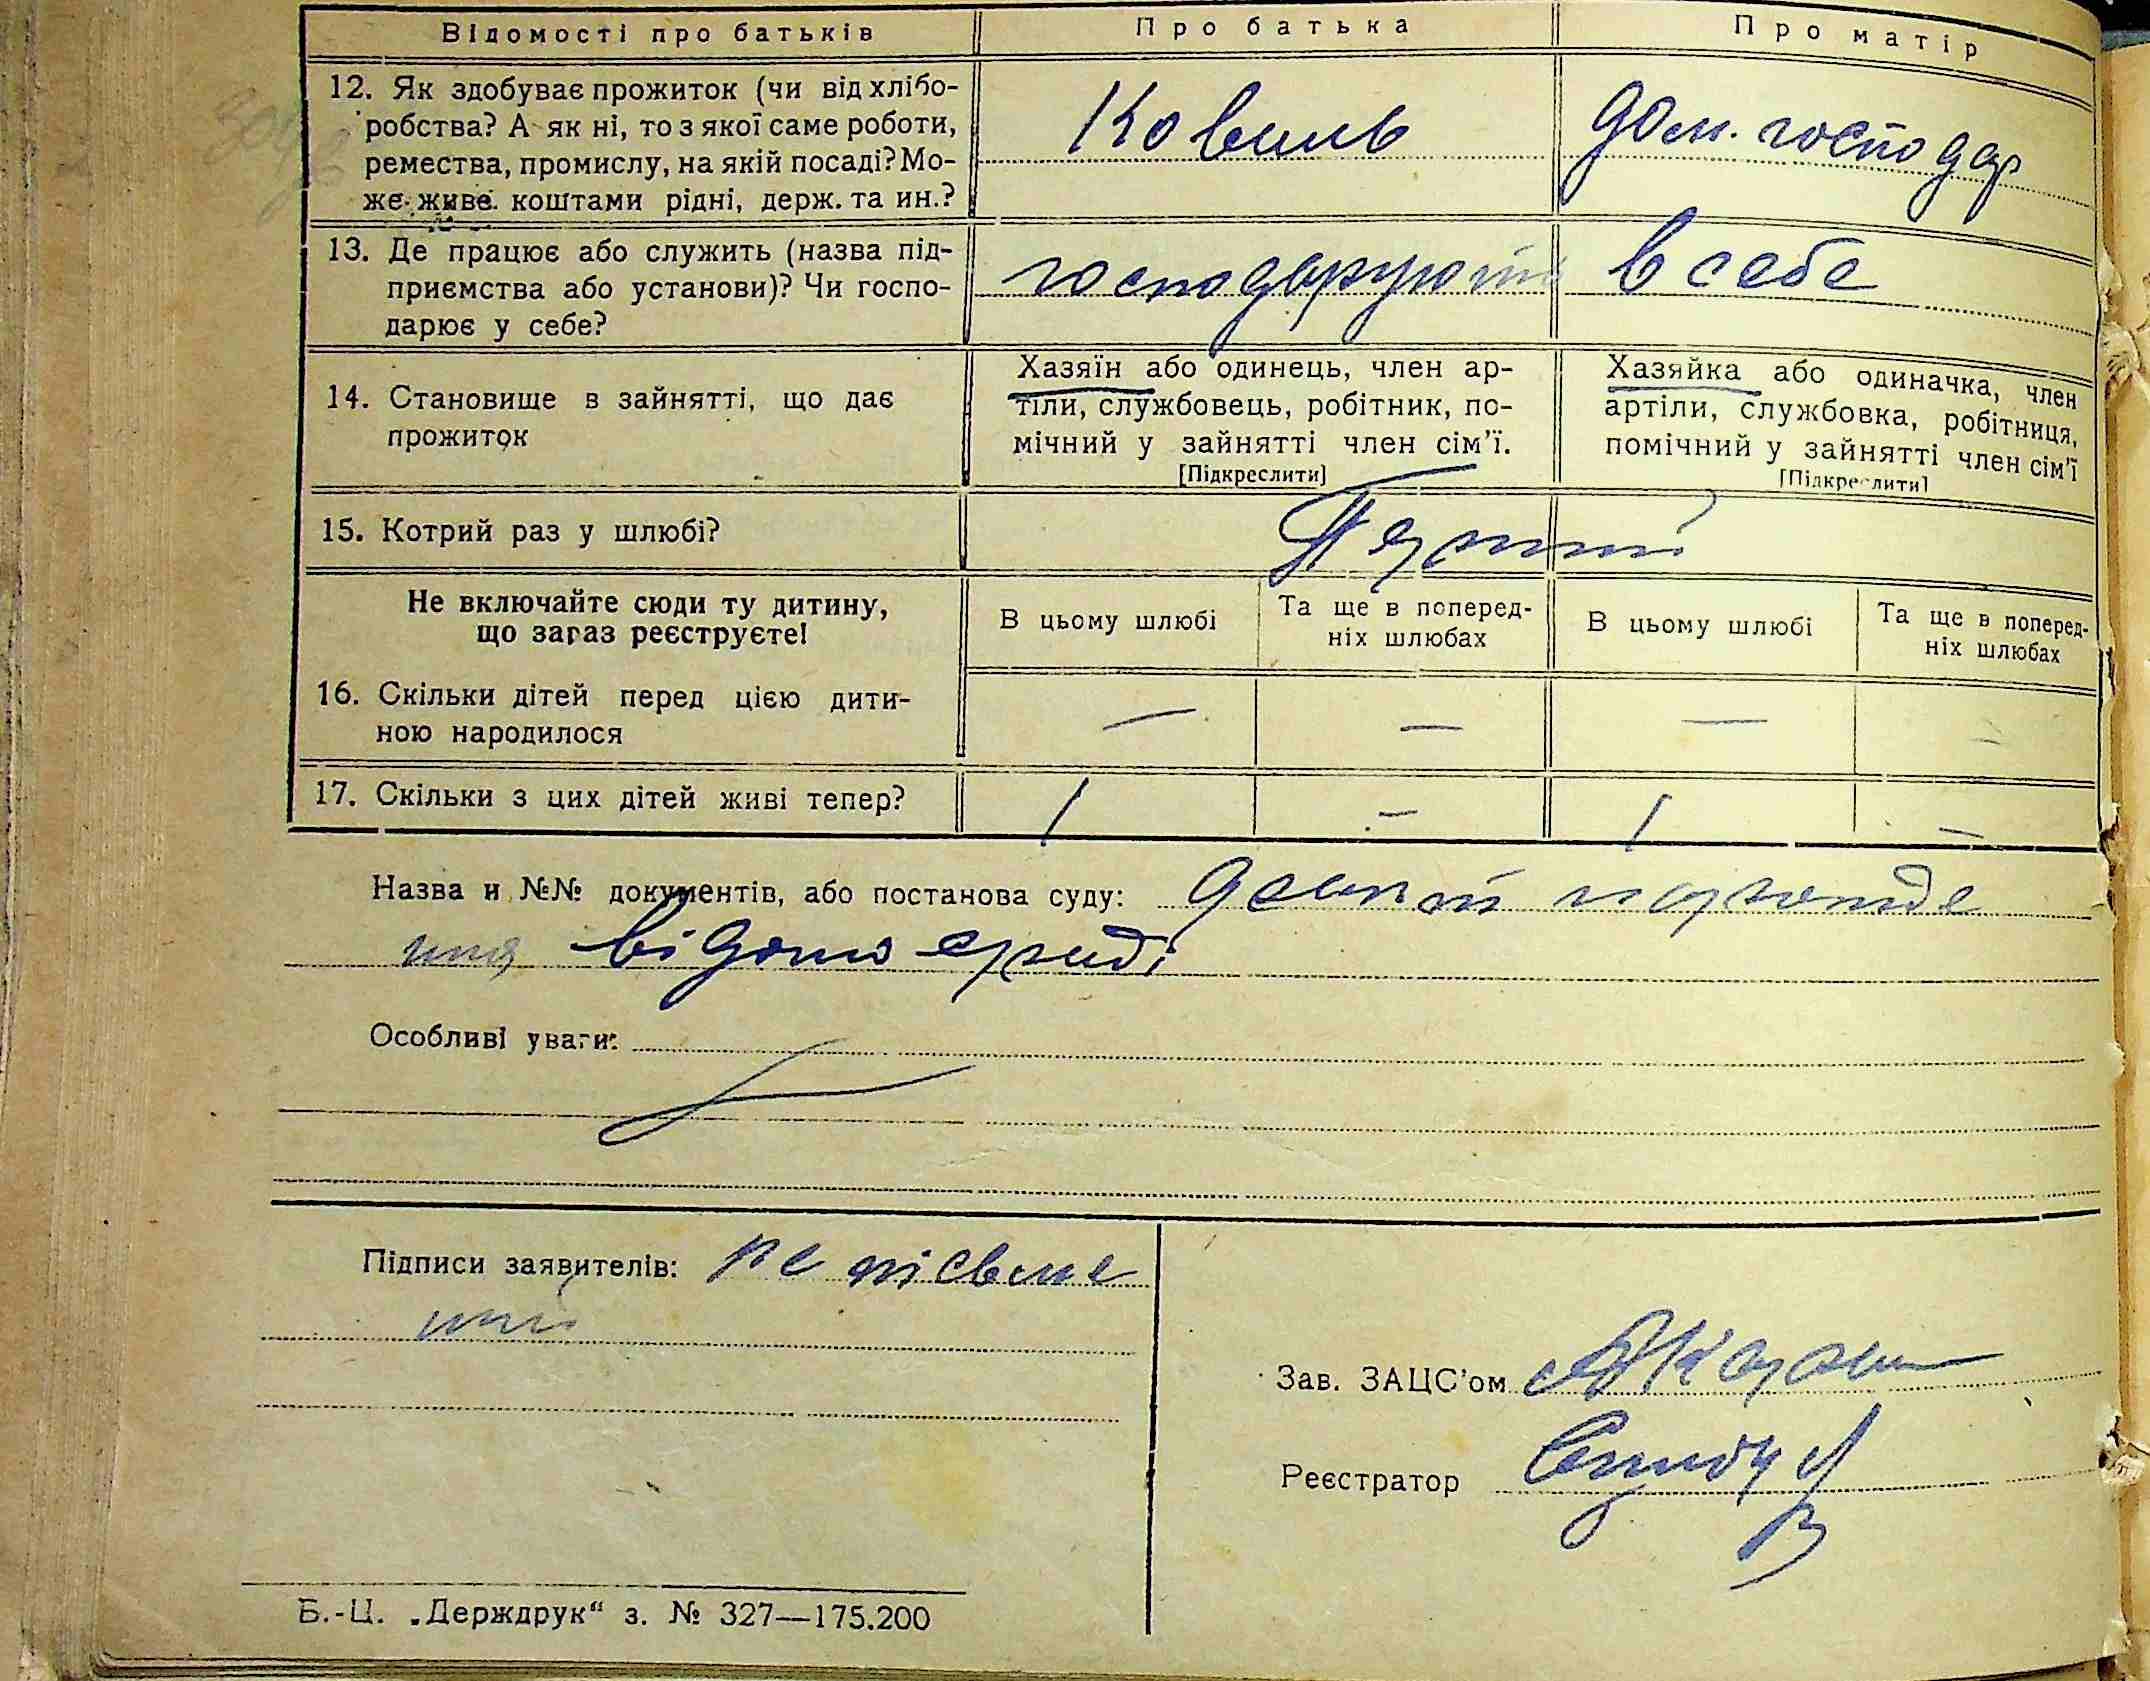 Відомості про батьків
Про батька
Про матір
12. Як здобуває прожиток (чи від хлібо-
робства? А як ні, то з якої саме роботи,
ремества, промислу, на якій посаді? Мо-
же живе коштами рідні, держ. та ин.?
Коваль
дом. господар
13. Де працює або служить (назва під-
приємства або установи)? Чи госпо-
дарює у себе?
господарують в себе
14. Становище в зайнятті, що дає
прожиток
Хазяїн або одинець, член ар-
тіли, службовець, робітник, по-
мічний у зайнятті член сім’ї.
[Підкреслити]
Хазяйка або одиначка, член
артіли, службовка, робітниця,
помічний у зайнятті член сім’ї
[Підкреслити]
15. Котрий раз у шлюбі?
Перший
Не включайте сюди ту дитину,
що зараз реєструєте!
В цьому шлюбі
Та ще в поперед-
ніх шлюбах
В цьому шлюбі
Та ще в поперед-
ніх шлюбах
16. Скільки дітей перед цією дити-
ною народилося
— — — —
17. Скільки з цих дітей живі тепер?
1 — 1 —
Назва и №№ документів, або постанова суду:
Особливі уваги:
Підписи заявителів: не письме
ний
Зав. ЗАЦС’ом
Реєстратор
Б.-Ц. „Держдрук“ з. № 327—175.200